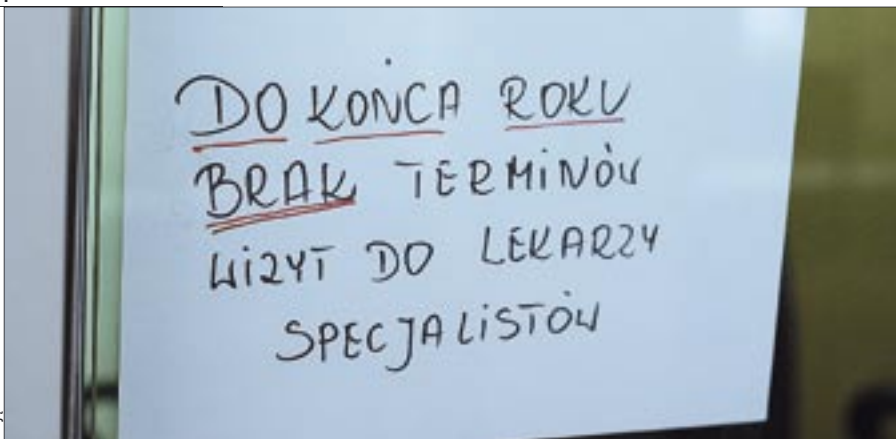 DO KOŃCA ROKU
BRAK TERMINÓW
WIZYT DO LEKARZY
SPECJALISTÓW